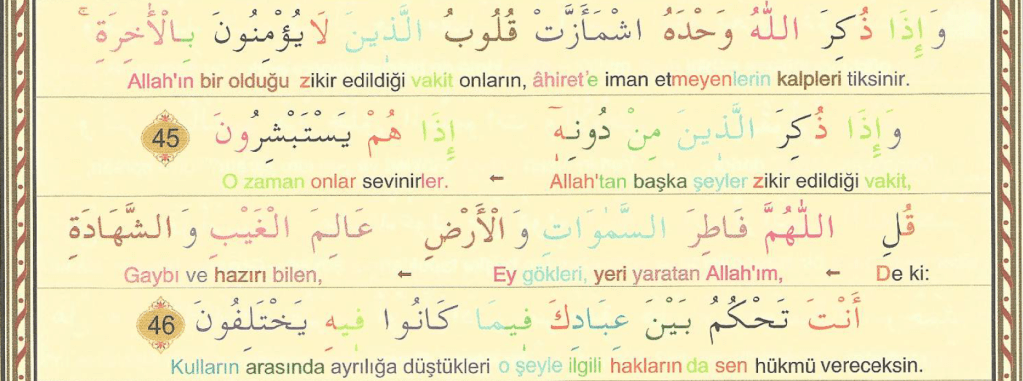 وَاِذَا ذُكِرَ اللّٰهُ وَحْدَهُ اشْمَاَزَّتْ قُلُوبُ الَّذِينَ لَا يُؤْمِنُونَ بِالْاٰخِرَةِۚ
Allah'ın bir olduğu zikir edildiği vakit onların, âhiret'e iman etmeyenlerin kalpleri tiksinir.
وَاِذَا ذُكِرَ الَّذِينَ مِنْ دُونِهِٓ اِذَا هُمْ يَسْتَبْشِرُونَ 45
Allah'tan başka şeyler zikir edildiği vakit, ← O zaman onlar sevinirler.
قُلِ اللّٰهُمَّ فَاطِرَ السَّمٰوَاتِ وَالْاَرْضِ عَالِمَ الْغَيْبِ وَالشَّهَادَةِ
De ki: ← Ey gökleri, yeri yaratan Allah'ım, ← Gaybı ve hazırı bilen,
اَنْتَ تَحْكُمُ بَيْنَ عِبَادِكَ فِيمَا كَانُوا فِيهِ يَخْتَلِفُونَ 46
Kulların arasında ayrılığa düştükleri o şeyle ilgili hakların da sen hükmü vereceksin.